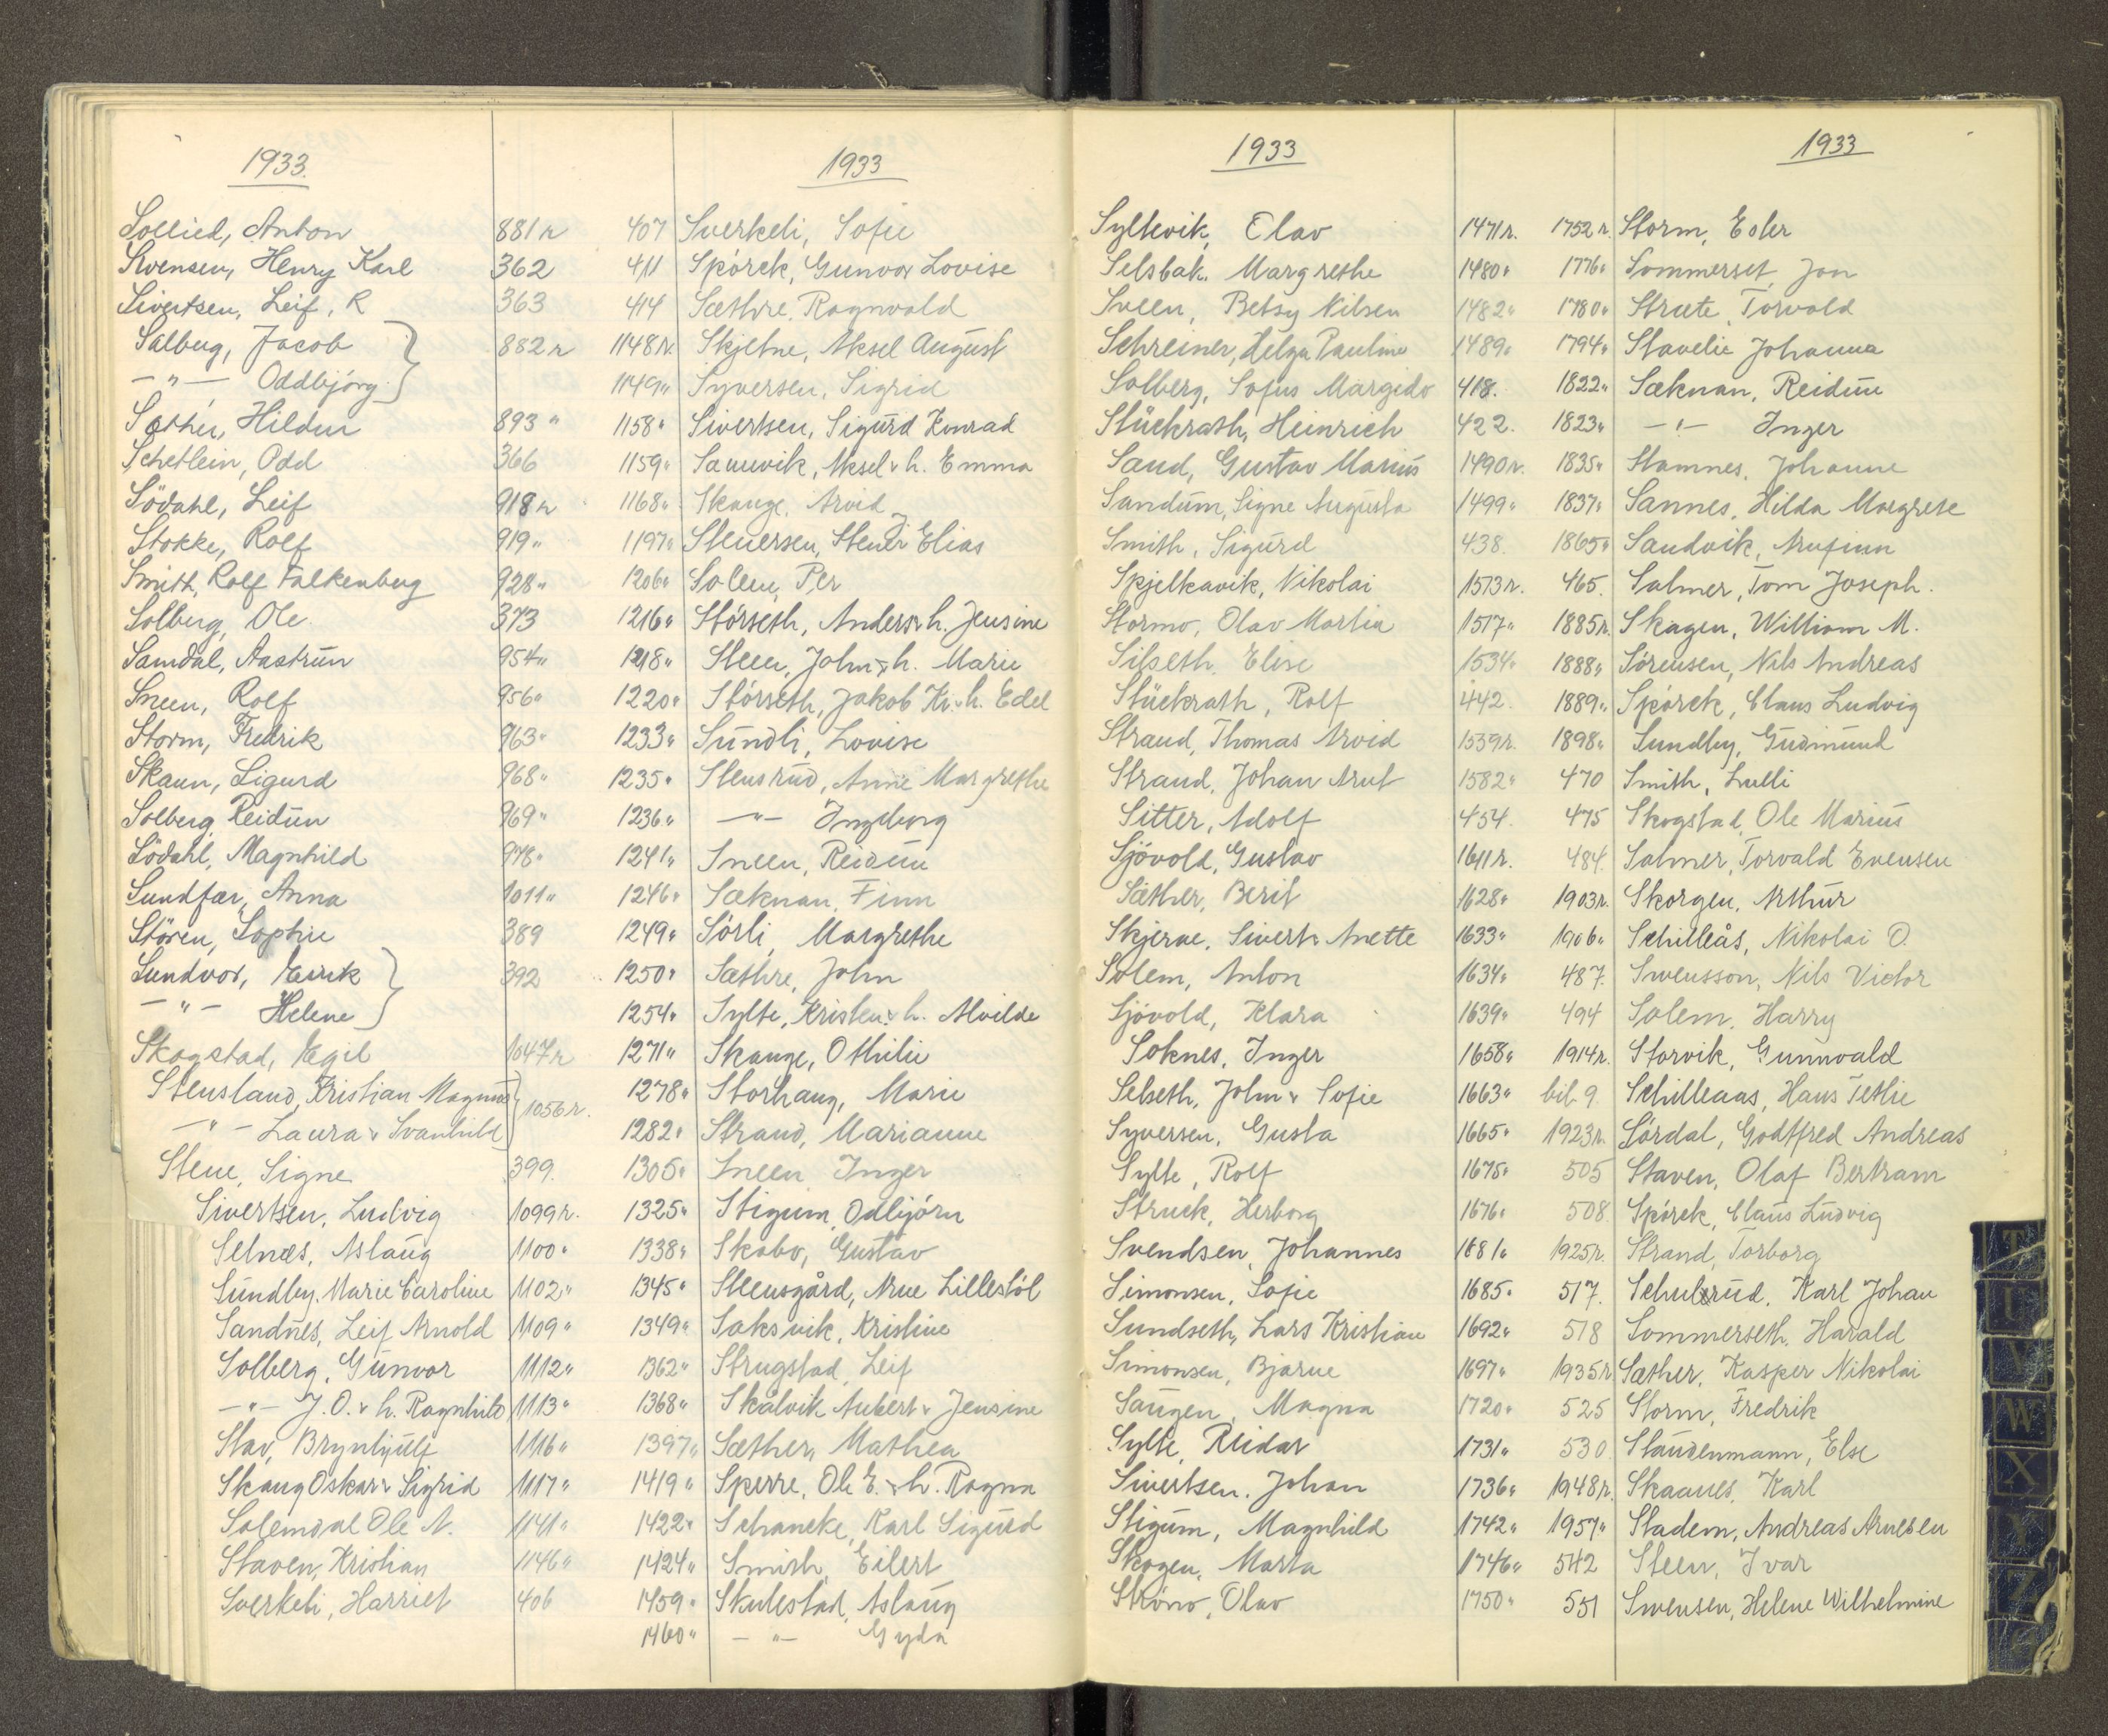 1933.
Sollied, Anton 881 r
Svensen, Henry Karl 362
Sivertsen, Leif, R 363
Salberg, Jacob 882 r
— " — Oddbjörg
Sæther, Hildur 893 "
Schetlein, Odd 366
Södahl, Leif 918 r
Stokke, Rolf 919 "
Smith, Rolf Falkenberg 928 "
Solberg, Ole 373
Samdal, Aastrun 954 "
Sneen, Rolf 956 "
Storm, Fredrik 963 "
Skaun, Sigurd 968 "
Solberg Reidun 969 "
Södahl, Magnhild 978 "
Sundfær, Anna 1011 "
Stören, Sophie 389
Sundvor, Eirik 392
— " — Helene
Skogstad, Egil 1047 r
Stensland, Kristian Magnus 1056 r.
— " — Laura & Svanhild
Stene, Signe 399.
Sivertsen, Ludvig 1099 r.
Selnæs, Aslaug 1100 "
Sundby, Marie Caroline 1102 "
Sandnes, Leif Arnold 1109 "
Solberg, Gunvor 1112 "
— " — J. O. & h. Ragnhild 1113 "
Stav, Brynhjulf 1116 "
Skaug Oskar & Sigrid 1117 "
Solemdal Ole N. 1141 "
Staven, Kristian 1146 "
Sverkeli, Harriet 406
1933
407 Sverkeli, Sofie
411 Spörck, Gunvor Lovise
414 Sæthre, Ragnvald
1148 r. Skjetne, Aksel August
1149 " Syversen, Sigrid
1158 " Sivertsen, Sigurd Konrad
1159 " Saunvik, Aksel & h. Emma
1168 " Skauge, Arvid
1197 " Stenersen, Stener Elias
1206 " Solem, Per
1216 " Störseth, Anders & h. Jensine
1218 " Steen, John & h. Marie
1220 " Störseth, Jakob Kr. & h. Edel
1233 " Sundli, Lovise
1235 " Stensrud, Anne Margrethe
1236 " — " — Ingeborg
1241 " Sneen, Reidun
1246 " Sæknan, Finn
1249 " Sörli, Margrethe
1250 " Sæthre, John
1254 " Sylte, Kristen & h. Alvilde
1271 " Skauge, Othilie
1278 " Storhaug, Marie
1282 " Strand, Marianne
1305 " Sneen Inger
1325 " Stigum, Odbjörn
1338 " Skabo, Gustav
1345 " Steensgård, Arne Lillestöl
1349 " Saksvik, Kristine
1362 " Strugstad, Leif
1368 " Skålvik Aubert & Jensine
1397 " Sæther, Mathea
1419 " Sperre, Ole E. & h. Ragna
1422 " Schancke, Karl Sigurd
1424 " Smith, Eilert
1459 " Skulestad, Aslaug
1460 " — " — Gyda
1933
Syltevik, Olav 1471 r.
Selsbak, Margrethe 1480 "
Sveen, Betsy Nilsen 1482 "
Schreiner, Helga Pauline 1489 "
Solberg, Sofus Margido 418.
Stückrath, Heinrich 422.
Sand, Gustav Marius 1490 r.
Sandum, Signe Augusta 1499 "
Smith, Sigurd 438.
Spjelkavik, Nikolai 1513 r.
Stormo, Olav Martin 1517 "
Silseth, Elise 1534 "
Stückrath, Rolf 442.
Strand, Thomas Arvid 1539 r.
Strand, Johan Arnt 1582 "
Sitter, Adolf 454.
Sjövold, Gustav 1611 r.
Sæther, Berit 1628 "
Skjerve, Sivert & Anette 1633 "
Solem, Anton 1634 "
Sjövold, Klara 1639 "
Soknes, Inger 1658 "
Selseth, John & Sofie 1663 "
Syversen, Gusta 1665 "
Sylte, Rolf 1675 "
Struck, Herborg 1676 "
Svendsen, Johannes 1681 "
Simonsen, Sofie 1685 "
Sundseth, Lars Kristian 1692 "
Simonsen, Bjarne 1697 "
Saugen, Magna 1720 "
Sylte, Reidar 1731 "
Sivertsen, Johan 1736 "
Stigum, Magnhild 1742 "
Skogen, Marta 1746 "
Ströno, Olav 1750 "
1933
1752 r. Storm, Esler
1776 " Sommerset, Jon
1780 " Stræte, Torvald
1794 " Stavelie Johanna
1822 " Sæknan, Reidun
1823 " — " — Inger
1835 " Stamnes, Johanne
1837 " Sannes, Hilda Margrete
1865 " Sandvik, Arnfinn
465. Salmer, Tom Joseph.
1885 r. Skagen, William M.
1888 " Sörensen, Nils Andreas
1889 " Spörck, Claus Ludvig
1898 " Sundby, Gudmund
470 Smith, Lulli
475 Skogstad, Ole Marius
484. Salmer, Torvald Evensen
1903 r. Skorgen, Arthur
1906 " Schilleås, Nikolai O.
487. Swensson, Nils Victor
494 Solem, Harry
1914 r. Storvik, Gunnvald
bib 9. Schilleaas, Hans Tetlie
1923 r. Sördal, Godtfred Andreas
505 Staven, Olaf Bertram
508. Spörck, Claus Ludvig
1925 r. Strand, Torborg
517. Schulrud, Karl Johan
518 Sommerseth, Harald
1935 r Sæther, Kasper Nikolai
525 Storm, Fredrik
530 Staudenmann, Else
1948 r. Skaanes, Karl
1957 " Stadem, Andreas Arnesen
542 Steen, Ivar
551 Swensen, Helene Wilhelmine
T
U
V
W
X
Y
Z